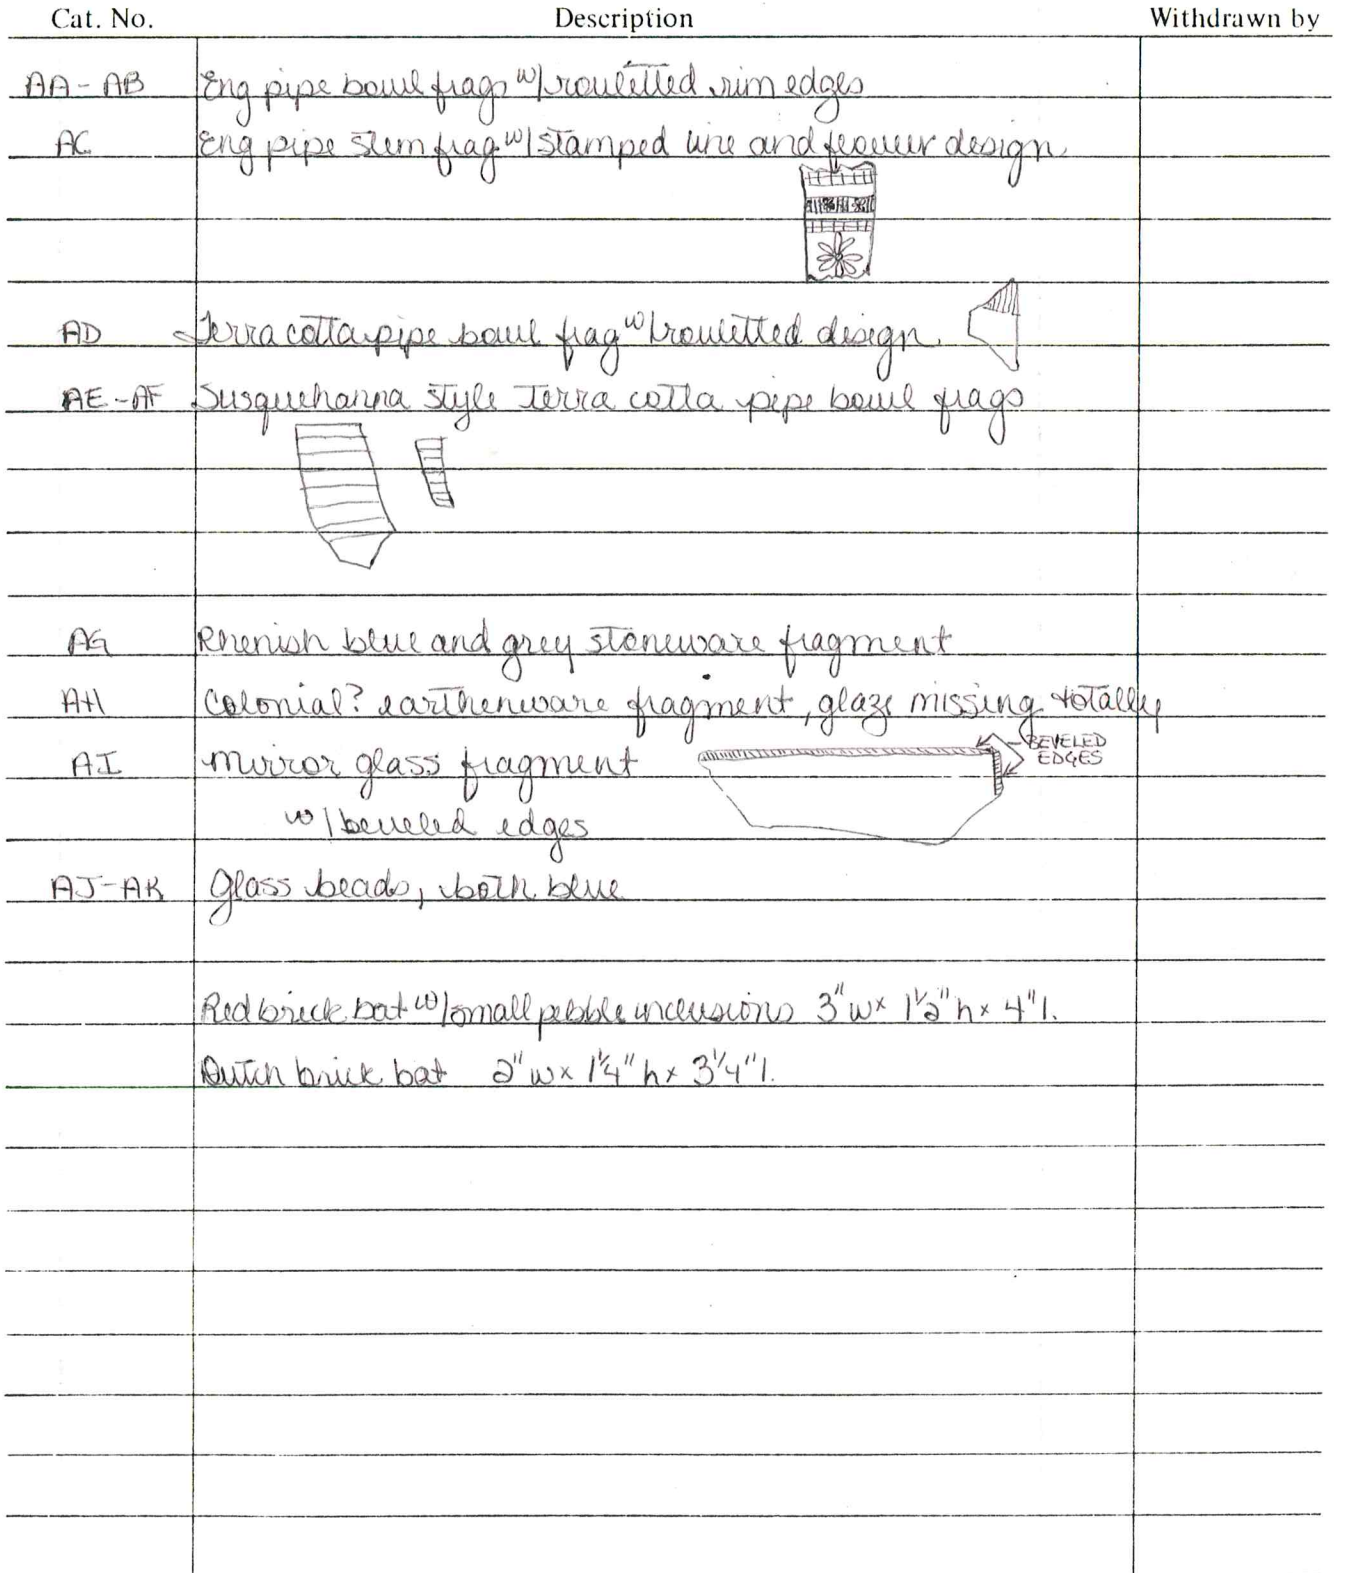 Cat. No. Description Withdrawn by
AA-AB Eng pipe bowl frags w/rouletted rim edges
AC Eng pipe stem frag w/stamped line and flower design
AD Terra cotta pipe bowl frag w/rouletted design
AE-AF Susquehanna style terra cotta pipe bowl frags
AG Rhenish blue and grey stoneware fragment
AH Colonial? earthenware fragment, glaze missing totally
AI mirror glass fragment BEVELED
EDGES
w/beveled edges
AJ-AK Glass beads, both blue
Red brick bat w/small pebble inclusions 3"w x 1 1/2"h x 4"l.
Dutch brick bat 2"w x 1 1/4"h x 3 1/4"l.